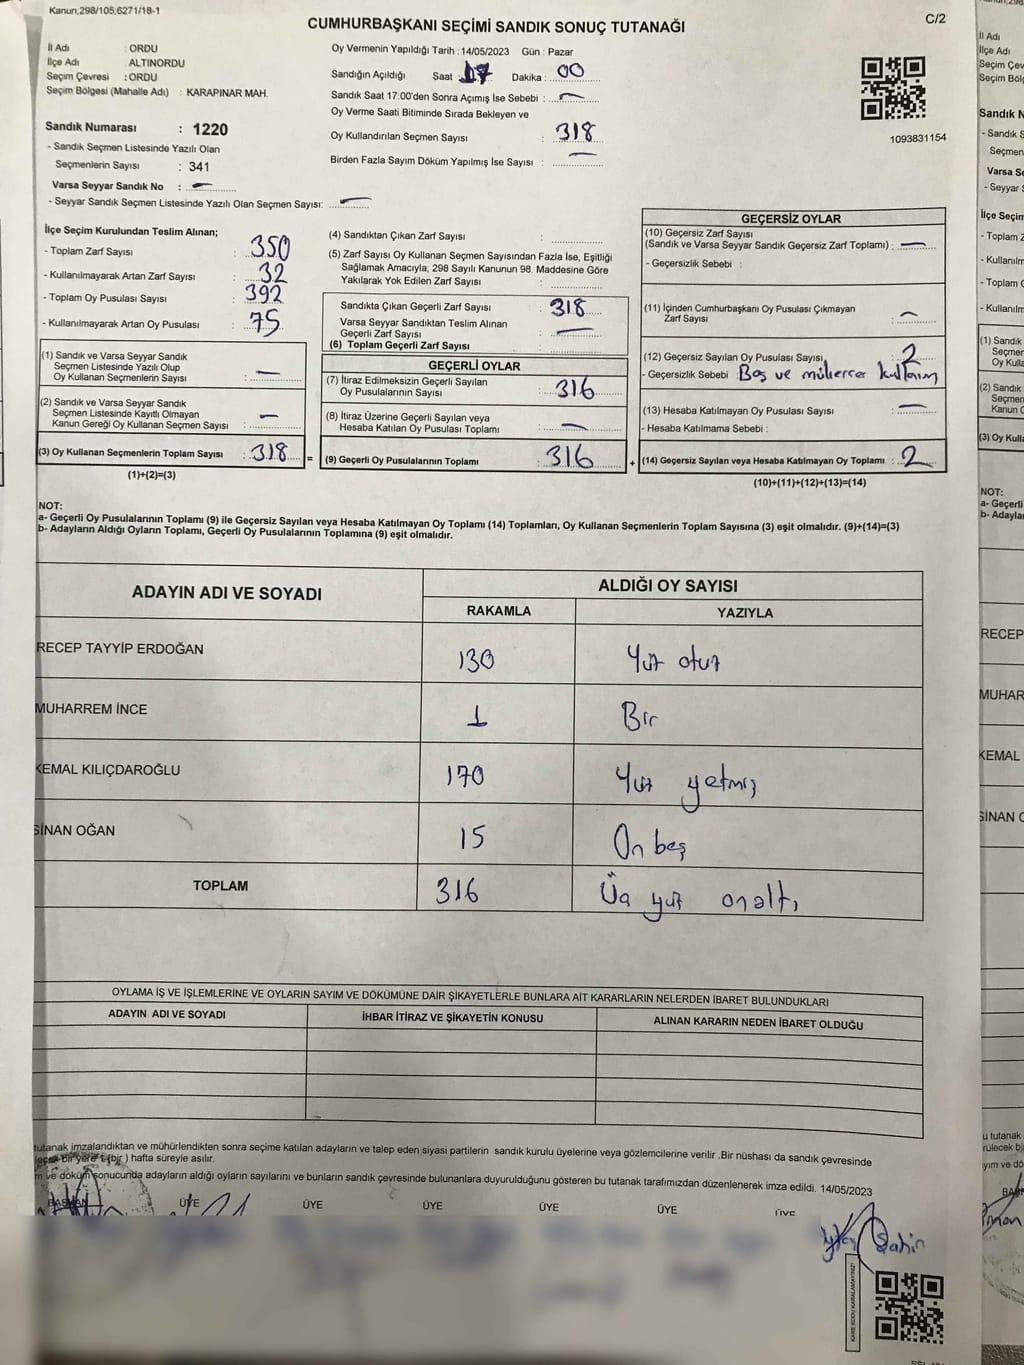 Kanun;298/105;6271/18-1
CUMHURBAŞKANI SEÇİMİ SANDIK SONUÇ TUTANAĞI
C/2
İl Adı : ORDU
İlçe Adı : ALTINORDU
Seçim Çevresi : ORDU
Seçim Bölgesi (Mahalle Adı) : KARAPINAR MAH.
Sandık Numarası : 1220
- Sandık Seçmen Listesinde Yazılı Olan
Seçmenlerin Sayısı : 341
Varsa Seyyar Sandık No : —
- Seyyar Sandık Seçmen Listesinde Yazılı Olan Seçmen Sayısı: —
Oy Vermenin Yapıldığı Tarih : 14/05/2023 Gün : Pazar
Sandığın Açıldığı Saat : 17 Dakika : 00
Sandık Saat 17:00'den Sonra Açımış İse Sebebi : —
Oy Verme Saati Bitiminde Sırada Bekleyen ve
Oy Kullandırılan Seçmen Sayısı : 318
Birden Fazla Sayım Döküm Yapılmış İse Sayısı : —
1093831154
İlçe Seçim Kurulundan Teslim Alınan;
- Toplam Zarf Sayısı : 350
- Kullanılmayarak Artan Zarf Sayısı : 32
- Toplam Oy Pusulası Sayısı : 392
- Kullanılmayarak Artan Oy Pusulası : 75
(1) Sandık ve Varsa Seyyar Sandık
Seçmen Listesinde Yazılı Olup
Oy Kullanan Seçmenlerin Sayısı : —
(2) Sandık ve Varsa Seyyar Sandık
Seçmen Listesinde Kayıtlı Olmayan
Kanun Gereği Oy Kullanan Seçmen Sayısı : —
(3) Oy Kullanan Seçmenlerin Toplam Sayısı : 318 =
(1)+(2)=(3)
(4) Sandıktan Çıkan Zarf Sayısı :
(5) Zarf Sayısı Oy Kullanan Seçmen Sayısından Fazla İse, Eşitliği
Sağlamak Amacıyla; 298 Sayılı Kanunun 98. Maddesine Göre
Yakılarak Yok Edilen Zarf Sayısı :
Sandıkta Çıkan Geçerli Zarf Sayısı : 318
Varsa Seyyar Sandıktan Teslim Alınan
Geçerli Zarf Sayısı : —
(6) Toplam Geçerli Zarf Sayısı :
GEÇERLİ OYLAR
(7) İtiraz Edilmeksizin Geçerli Sayılan
Oy Pusulalarının Sayısı : 316
(8) İtiraz Üzerine Geçerli Sayılan veya
Hesaba Katılan Oy Pusulası Toplamı : —
(9) Geçerli Oy Pusulalarının Toplamı : 316 +
GEÇERSİZ OYLAR
(10) Geçersiz Zarf Sayısı
(Sandık ve Varsa Seyyar Sandık Geçersiz Zarf Toplamı) : —
- Geçersizlik Sebebi :
(11) İçinden Cumhurbaşkanı Oy Pusulası Çıkmayan
Zarf Sayısı : —
(12) Geçersiz Sayılan Oy Pusulası Sayısı : 2
- Geçersizlik Sebebi : Boş ve
(13) Hesaba Katılmayan Oy Pusulası Sayısı : —
- Hesaba Katılmama Sebebi :
(14) Geçersiz Sayılan veya Hesaba Katılmayan Oy Toplamı : 2
(10)+(11)+(12)+(13)=(14)
NOT:
a- Geçerli Oy Pusulalarının Toplamı (9) ile Geçersiz Sayılan veya Hesaba Katılmayan Oy Toplamı (14) Toplamları, Oy Kullanan Seçmenlerin Toplam Sayısına (3) eşit olmalıdır. (9)+(14)=(3)
b- Adayların Aldığı Oyların Toplamı, Geçerli Oy Pusulalarının Toplamına (9) eşit olmalıdır.
ADAYIN ADI VE SOYADI
ALDIĞI OY SAYISI
RAKAMLA YAZIYLA
RECEP TAYYİP ERDOĞAN 130 Yüz otuz
MUHARREM İNCE 1 Bir
KEMAL KILIÇDAROĞLU 170 Yüz yetmiş
SİNAN OĞAN 15 On beş
TOPLAM 316 Üç yüz onaltı
OYLAMA İŞ VE İŞLEMLERİNE VE OYLARIN SAYIM VE DÖKÜMÜNE DAİR ŞİKAYETLERLE BUNLARA AİT KARARLARIN NELERDEN İBARET BULUNDUKLARI
ADAYIN ADI VE SOYADI İHBAR İTİRAZ VE ŞİKAYETİN KONUSU ALINAN KARARIN NEDEN İBARET OLDUĞU
tutanak imzalandıktan ve mühürlendikten sonra seçime katılan adayların ve talep eden siyasi partilerin sandık kurulu üyelerine veya gözlemcilerine verilir .Bir nüshası da sandık çevresinde
bir yere 1 (bir ) hafta süreyle asılır.
ve döküm sonucunda adayların aldığı oyların sayılarını ve bunların sandık çevresinde bulunanlara duyurulduğunu gösteren bu tutanak tarafımızdan düzenlenerek imza edildi. 14/05/2023
BAŞKAN ÜYE ÜYE ÜYE ÜYE ÜYE ÜYE
Şahin
KARE KODU KARALAMAYINIZ!
İl Adı
İlçe Adı
Seçim Çev
Seçim Böl
Sandık N
- Sandık S
Seçmen
Varsa Se
- Seyyar S
İlçe Seçim
- Toplam Z
- Kullanılm
- Toplam O
- Kullanılm
(1) Sandık
Seçmen
Oy Kulla
(2) Sandık
Seçmen
Kanun G
(3) Oy Kulla
NOT:
a- Geçerli
b- Adayla
RECEP
MUHAR
KEMAL
SİNAN O
u tutanak
rülecek bi
ayım ve dö